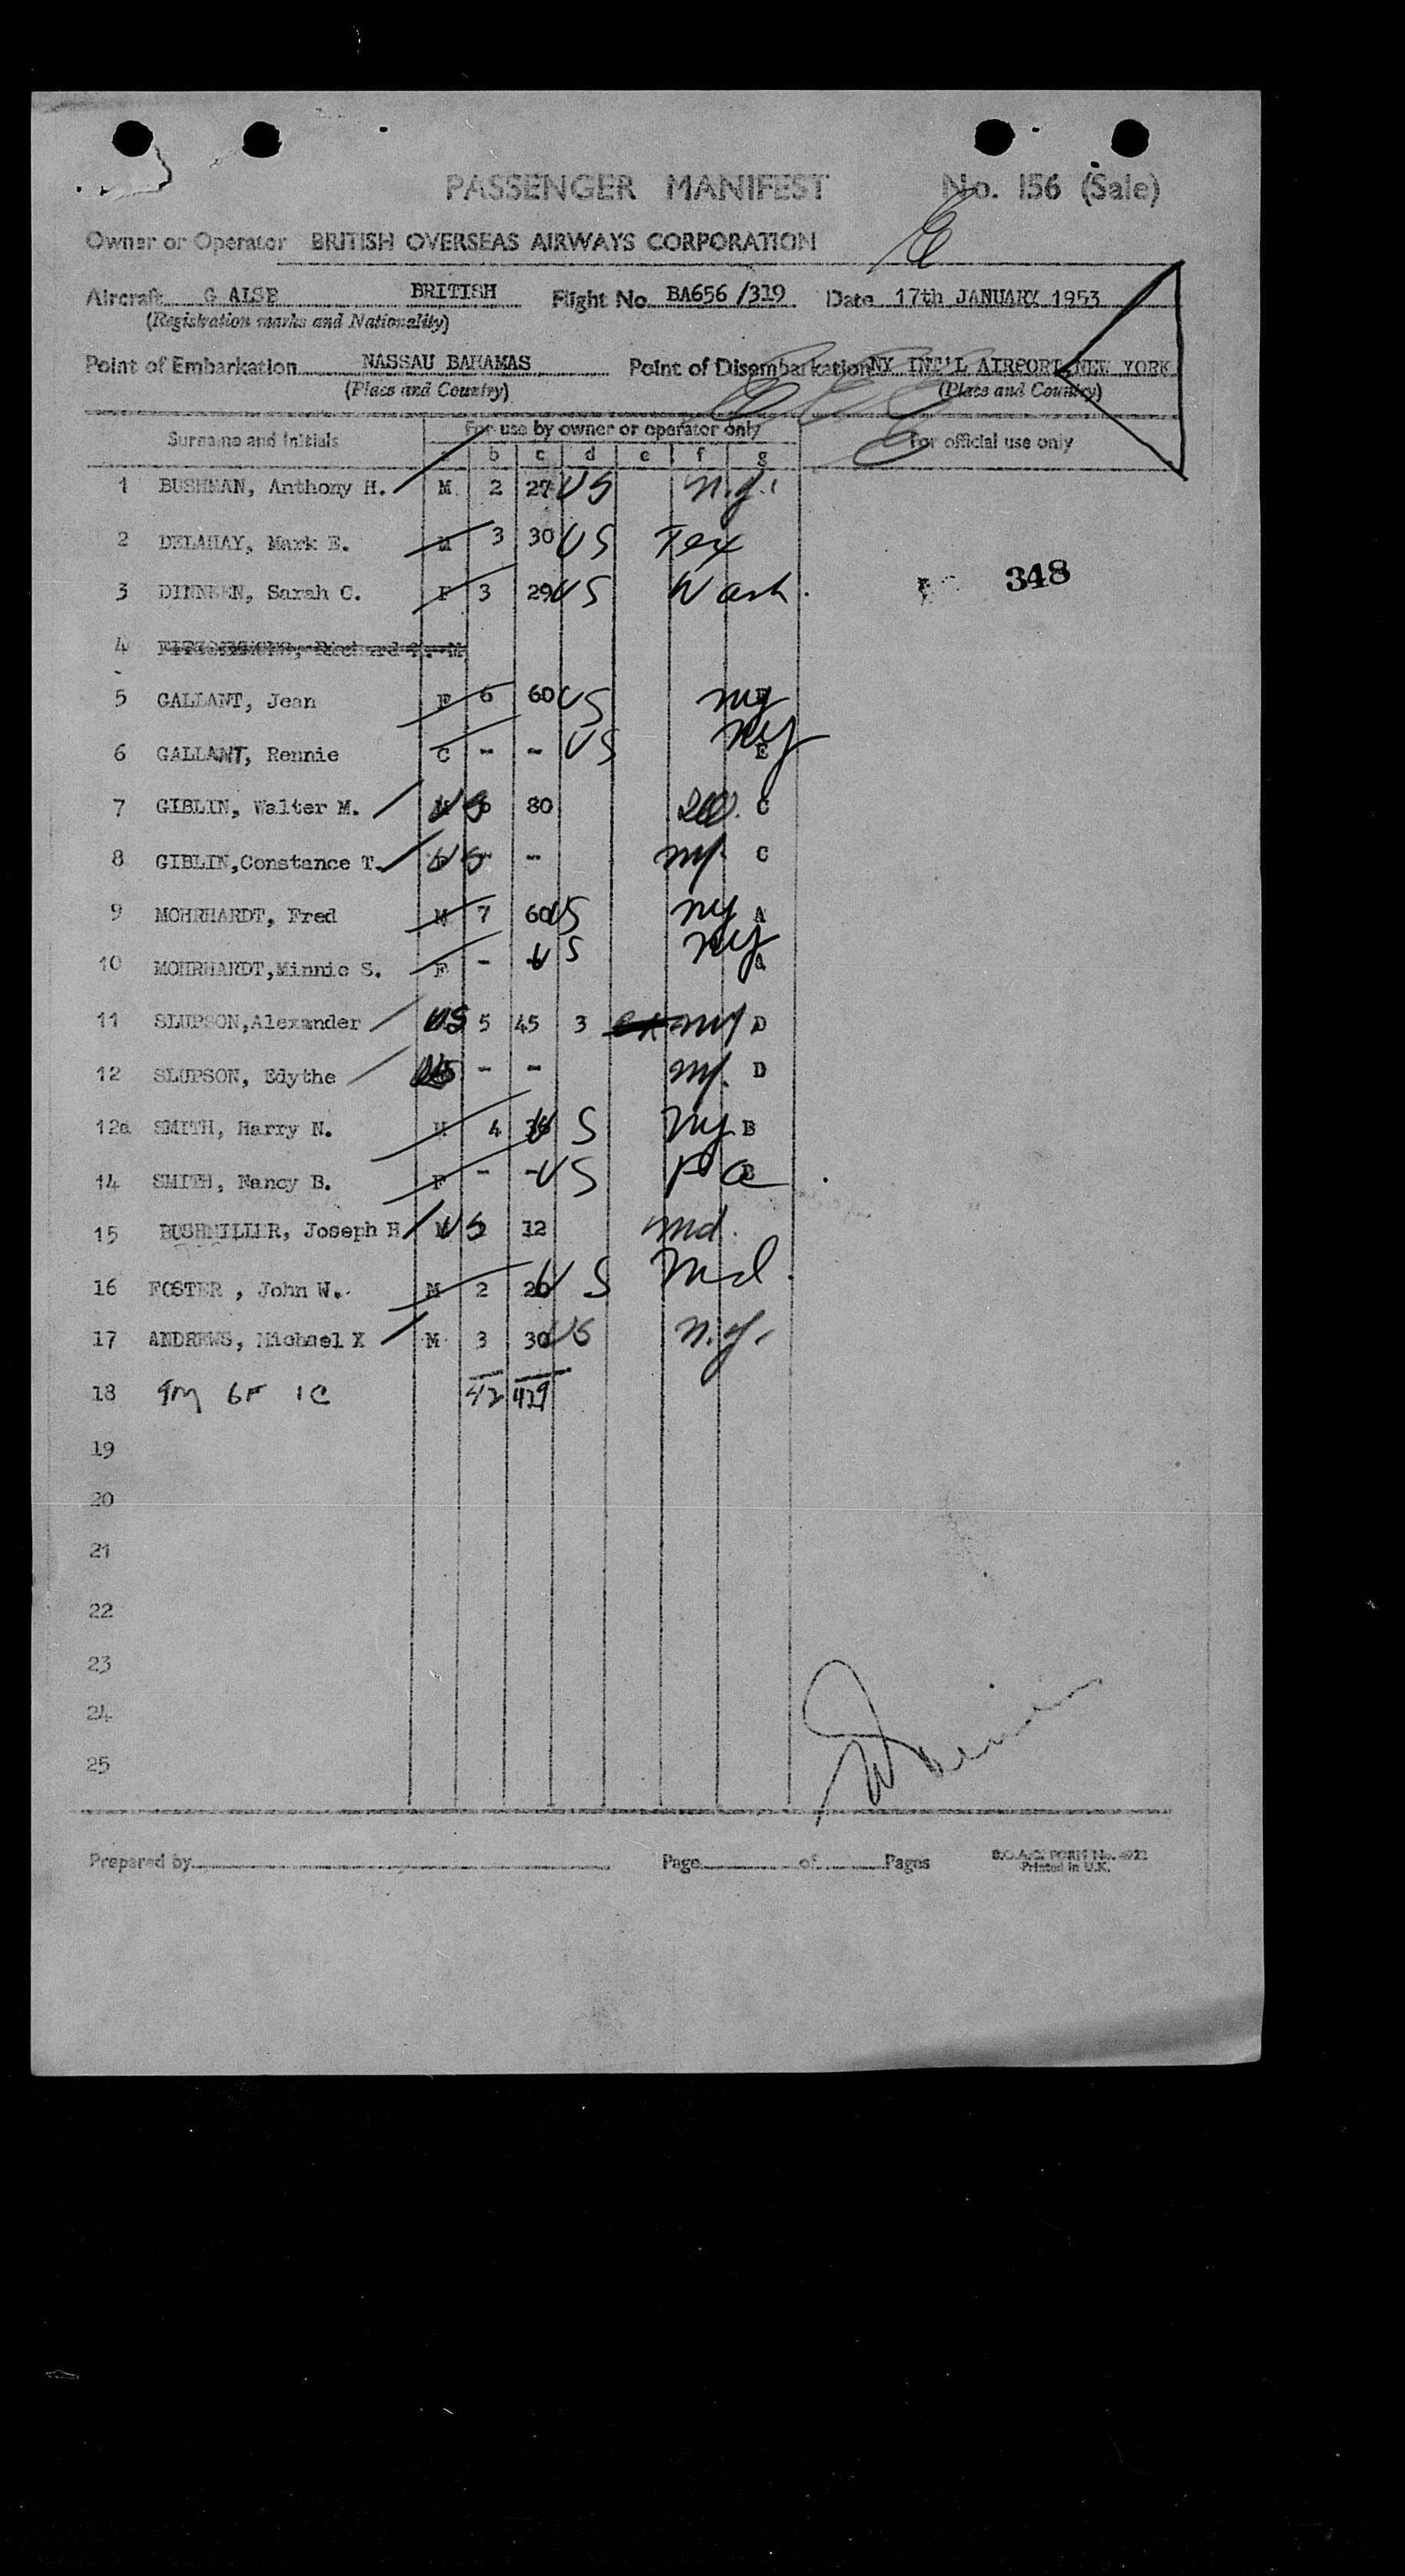 PASSENGER MANIFEST No. 156 (Sale)
Owner or Operator BRITISH OVERSEAS AIRWAYS CORPORATION
Aircraft G ALSB BRITISH Flight No. BA656/319 Date 17th JANUARY 1953
(Registration marks and Nationality)
Point of Embarkation NASSAU BAHAMAS Point of Disembarkation NY INT'L AIRPORT NEW YORK
(Place and Country) (Place and Country)
Surname and Initials For use by owner or operator only For official use only
b c d e f g
1 BUSHMAN, Anthony H. M 2 27 US N.J.
2 DELAHAY, Mark E. M 3 30 US Tex
3 DINNEEN, Sarah C. F 3 29 US Wash.
348
4 Richard M
5 GALLANT, Jean F 6 60 US NY
6 GALLANT, Rennie C - - US NY E
7 GIBLIN, Walter M. US 80 C
8 GIBLIN, Constance T. US - NY. C
9 MOHRHARDT, Fred M 7 60 US NY A
10 MOHRHARDT, Minnie S. F - US NY A
11 SLUPSON, Alexander US 5 45 3 NY D
12 SLUPSON, Edythe US - - NY. D
12a SMITH, Harry N. M 4 US NY B
14 SMITH, Nancy B. F - - US Pa
15 BUSHMILLER, Joseph H US 12 Md.
16 FOSTER, John W. M 2 20 US Md.
17 ANDREWS, Michael X M 3 30 US N.Y.
18 9M 6F 1C 42 429
19
20
21
22
23
24
25
Prepared by Page of Pages
B.O.A.C. FORM No.
Printed in U.K.